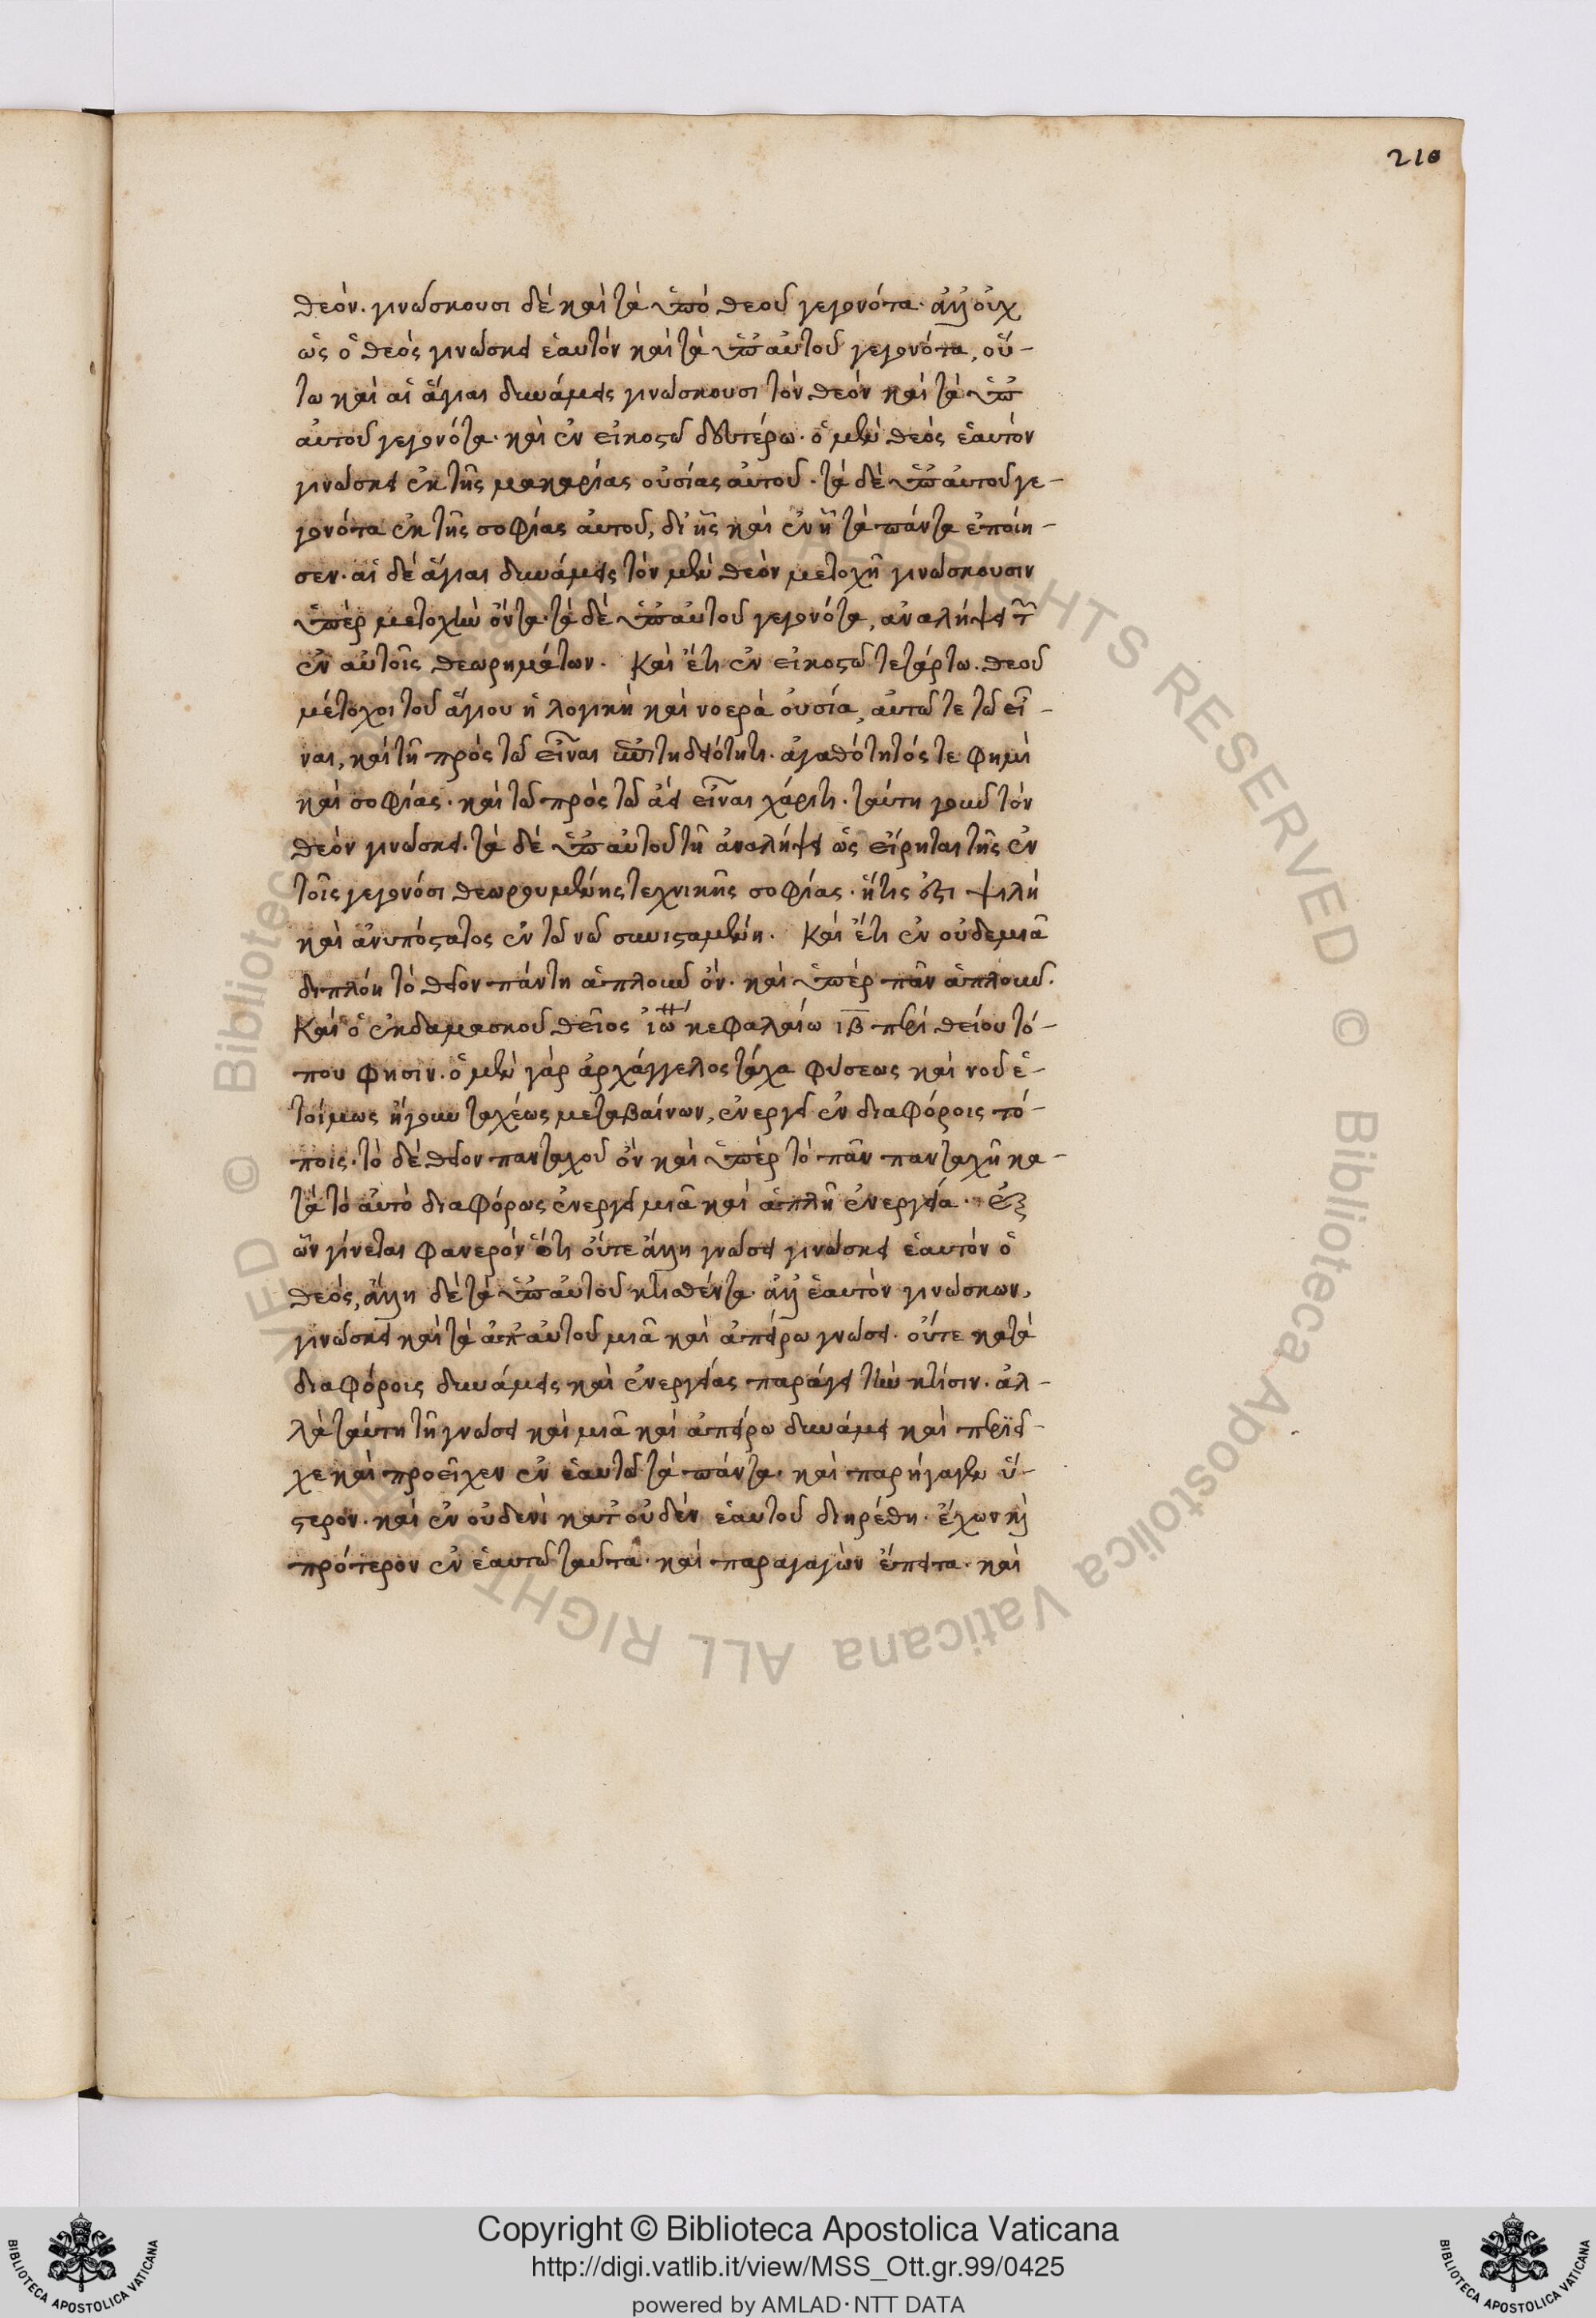 210
θεόν. γινώσκουσι δὲ καὶ τὰ ὑπὸ θεοῦ γεγονότα. ἀλλ' οὐχ
ὡς ὁ θεὸς γινώσκει ἑαυτὸν καὶ τὰ ὑπ' αὐτοῦ γεγονότα, οὕ-
τω καὶ αἱ ἅγιαι δυνάμεις γινώσκουσι τὸν θεὸν καὶ τὰ ὑπ'
αὐτοῦ γεγονότα. καὶ ἐν εἰκοστῶ δευτέρω. ὁ μὲν θεὸς ἑαυτὸν
γινώσκει ἐκ τῆς μακαρίας οὐσίας αὐτοῦ. τὰ δὲ ὑπ' αὐτοῦ γε-
γονότα ἐκ τῆς σοφίας αὐτοῦ, δι' ἧς καὶ ἐν ἧ τὰ πάντα ἐποίη-
σεν. αἱ δὲ ἅγιαι δυνάμεις τὸν μὲν θεὸν μετοχῆ γινώσκουσιν
ὑπὲρ μετοχὴν ὄντα. τὰ δὲ ὑπ' αὐτοῦ γεγονότα, ἀναλήψει τῶν
ἐν αὐτοῖς θεωρημάτων. Καὶ ἔτι ἐν εἰκοστῶ τετάρτω. θεοῦ
μέτοχοι τοῦ ἁγίου ἡ λογικὴ καὶ νοερὰ οὐσία, αὐτῶ τε τῶ εἶ-
ναι, καὶ τῆ πρὸς τῶ εἶναι ἐπιτηδειότητι. ἀγαθότητός τε φημὶ
καὶ σοφίας. καὶ τῶ πρὸς τῶ ἀεὶ εἶναι χάριτι. ταύτη γοῦν τὸν
θεὸν γινώσκει. τὰ δὲ ὑπ' αὐτοῦ τῆ ἀναλήψει ὡς εἴρηται τῆς ἐν
τοῖς γεγονόσι θεωρουμένης τεχνικῆς σοφίας. ἥτις ἐστὶ ψιλὴ
καὶ ἀνυπόστατος ἐν τῶ νῶ συνισταμένη. Καὶ ἔτι ἐν οὐδεμιᾶ
διπλόη τὸ θεῖον πάντη ἁπλοῦν ὄν. καὶ ὑπὲρ πᾶν ἁπλοῦν.
Καὶ ὁ ἐκ δαμασκοῦ θεῖος ἰω κεφαλαίω ιβ περὶ θείου τό-
που φησίν. ὁ μὲν γὰρ ἀρχάγγελος τάχα φύσεως καὶ νοῦ ἑ-
τοίμως ἤγουν ταχέως μεταβαίνων, ἐνεργεῖ ἐν διαφόροις τό-
ποις. τὸ δὲ θεῖον πανταχοῦ ὂν καὶ ὑπὲρ τὸ πᾶν πανταχῆ κα-
τὰ τὸ αὐτὸ διαφόρως ἐνεργεῖ μιᾶ καὶ ἁπλῆ ἐνεργεία. ἐξ
ὧν γίνεται φανερὸν ὅτι οὔτε ἄλλη γνώσει γινώσκει ἑαυτὸν ὁ
θεός, ἄλλη δὲ τὰ ὑπ' αὐτοῦ κτισθέντα. ἀλλ' ἑαυτὸν γινώσκων,
γινώσκει καὶ τὰ ἀπ' αὐτοῦ μιᾶ καὶ ἀπείρω γνώσει. οὔτε κατὰ
διαφόροις δυνάμεις καὶ ἐνεργείας παράγει τὴν κτίσιν. ἀλ-
λὰ ταύτη τῆ γνώσει καὶ μιᾶ καὶ ἀπείρω δυνάμει καὶ περιεῖ-
χε καὶ προεῖχεν ἐν ἑαυτῶ τὰ πάντα. καὶ παρήγαγεν ὕ-
στερον. καὶ ἐν οὐδενὶ κατ' οὐδὲν ἑαυτοῦ διηρέθη. ἔχων καὶ
πρότερον ἐν ἑαυτῶ ταῦτα. καὶ παραγαγὼν ἔπειτα. καὶ
Copyright © Biblioteca Apostolica Vaticana
http://digi.vatlib.it/view/MSS_Ott.gr.99/0425
powered by AMLAD·NTT DATA